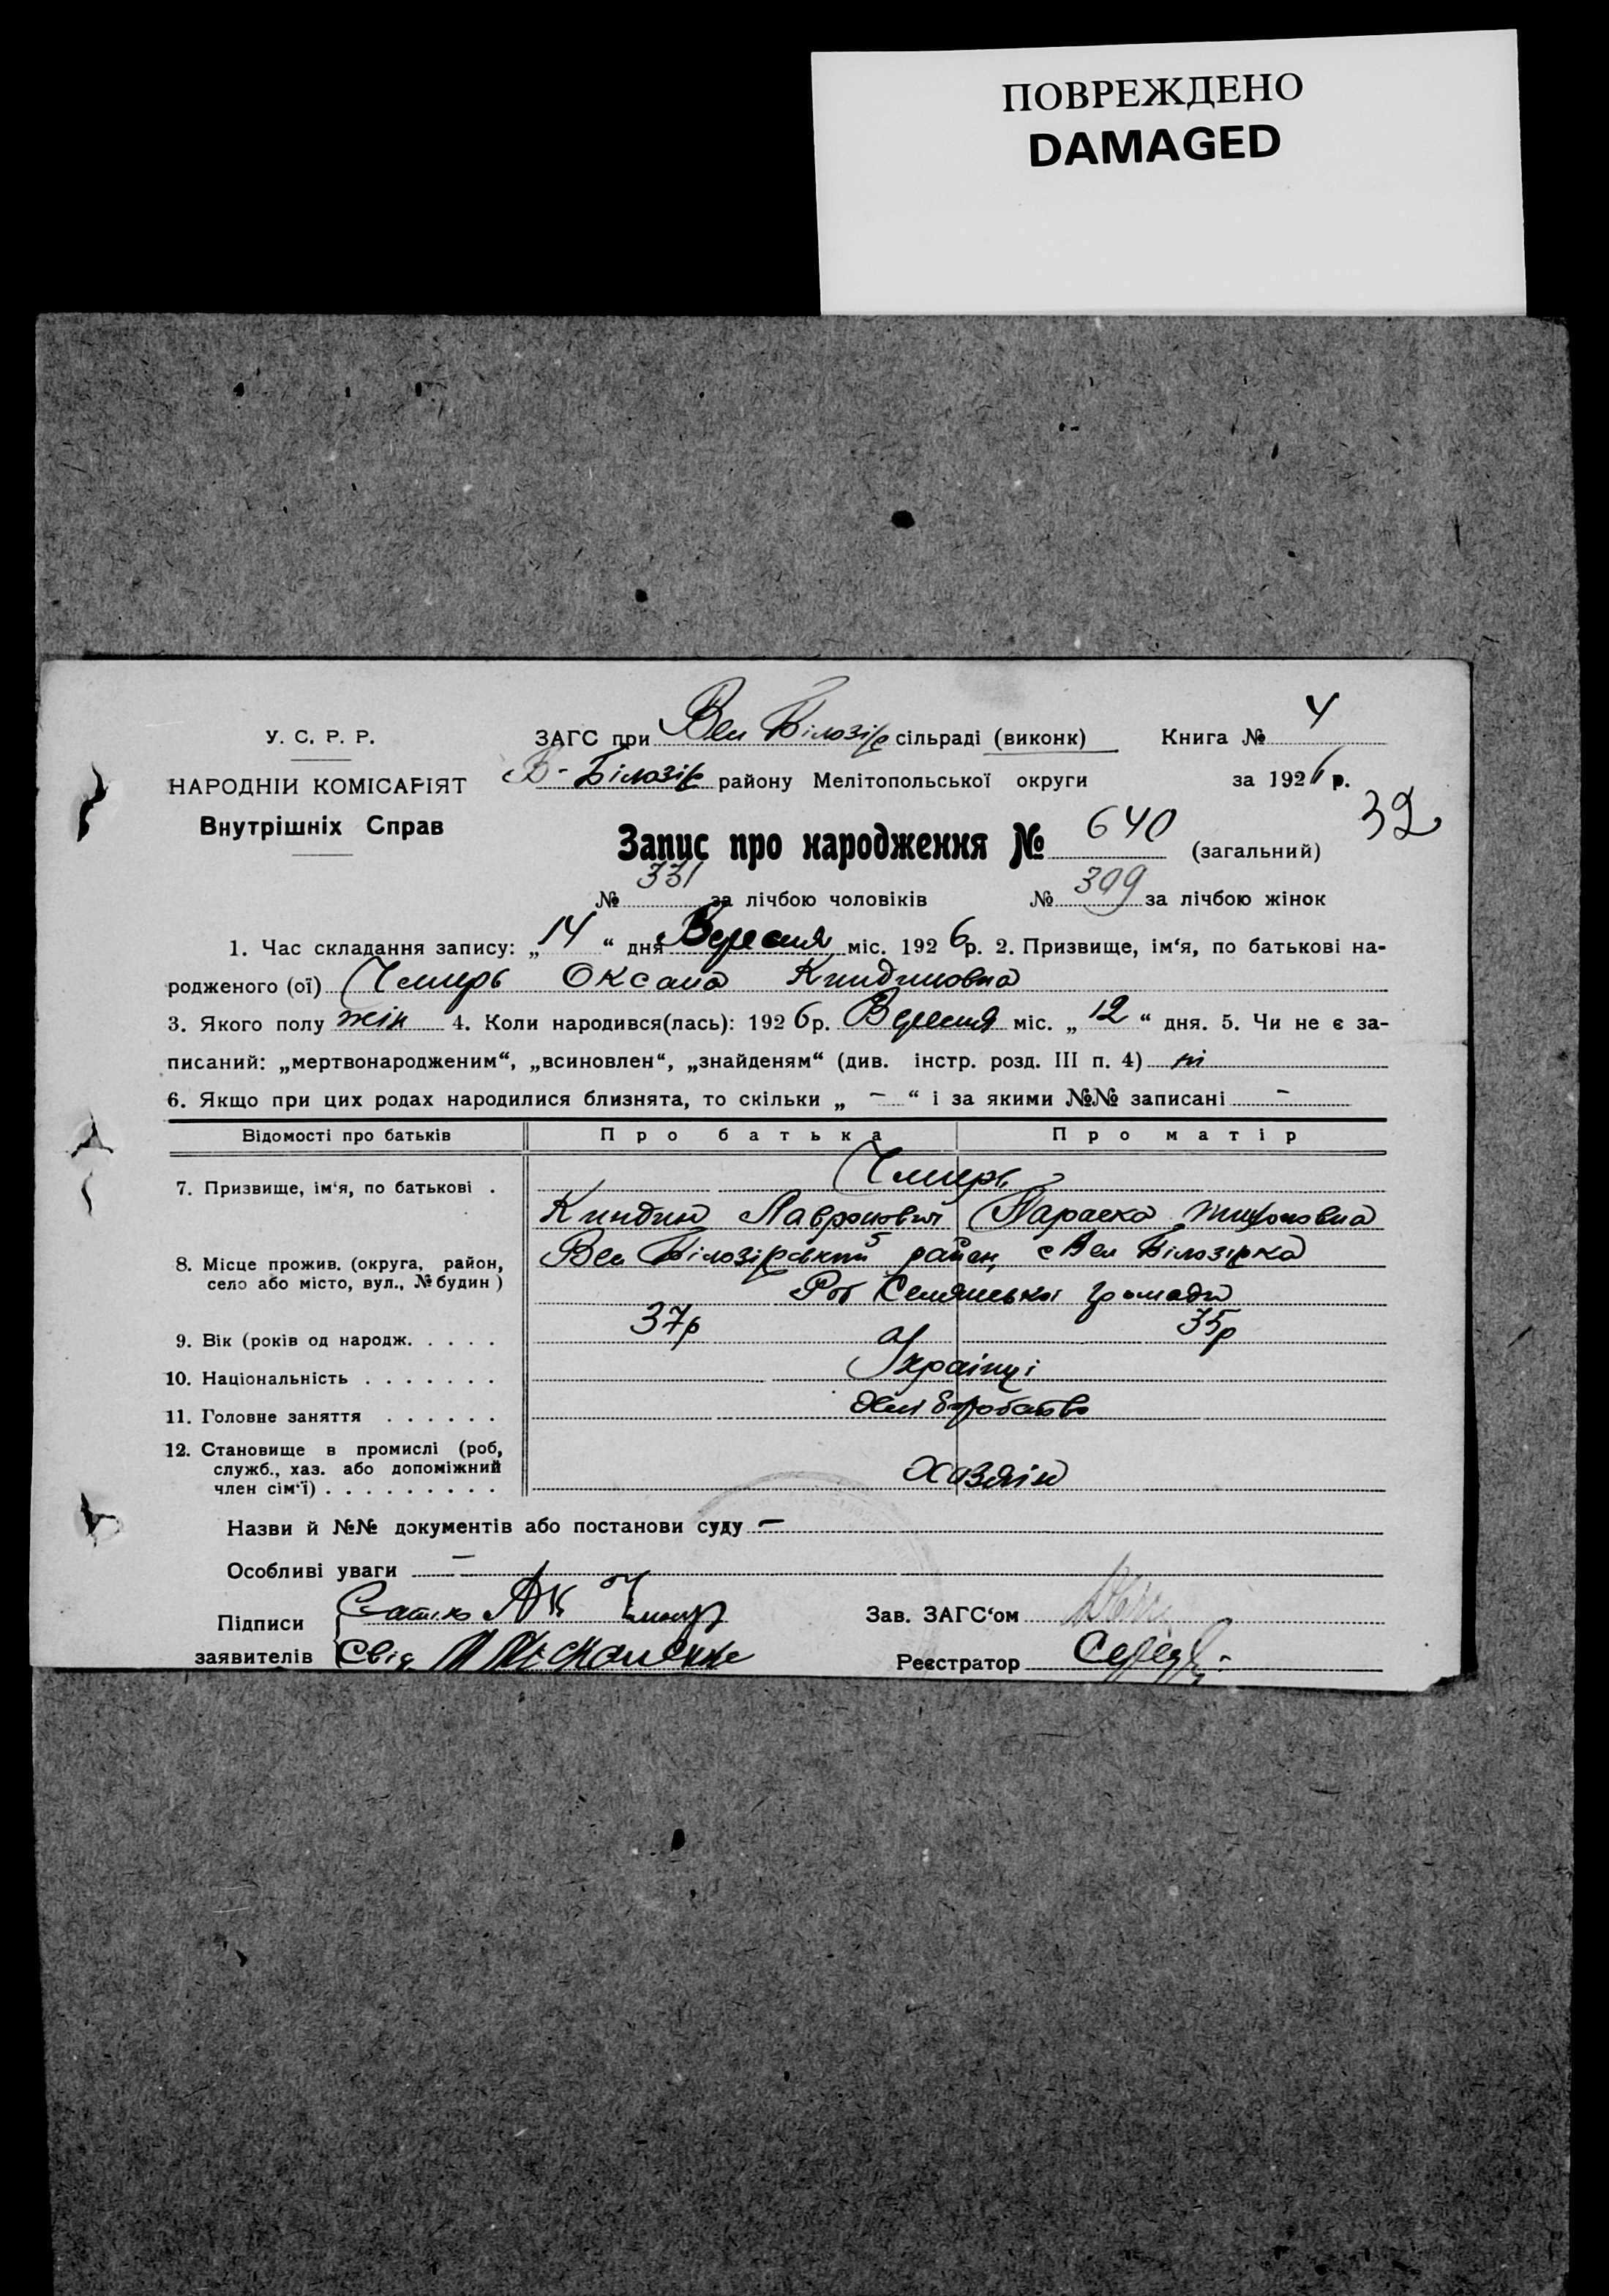 ПОВРЕЖДЕНО
DAMAGED
У. С. Р. Р.
НАРОДНІИ КОМІСАРІЯТ
Внутрішніх Справ
ЗАГС при Вел Білозір сільраді (виконк) Книга № 4
В-Білозір району Мелітопольської округи за 1926 р.
32
Запис про народження № 640 (загальний)
№ 331 за лічбою чоловіків № 309 за лічбою жінок
1. Час складання запису: „14“ дня Вересня міс. 1926 р. 2. Призвище, ім‘я, по батькові на-
родженого (ої) Чмирь Оксана Киндиновна
3. Якого полу жін 4. Коли народився(лась): 1926 р. Вересня міс. „12“ дня. 5. Чи не є за-
писаний: „мертвонародженим“, „всиновлен“, „знайденям“ (див. інстр. розд. III п. 4) ні
6. Якщо при цих родах народилися близнята, то скільки „ – “ і за якими №№ записані –
Відомості про батьків Про батька Про матір
7. Призвище, ім‘я, по батькові . Чмирь
Киндин Лавронович Параска Тихоновна
8. Місце прожив. (округа, район, Вел Білозірський район, с Вел Білозірка
село або місто, вул., № будин) Селянської громади
9. Вік (років од народж. . . . . 37р 35р
10. Національність . . . . . . . Українці
11. Головне заняття . . . . . . Хліборобство
12. Становище в промислі (роб,
служб., хаз. або допоміжний
член сім‘ї) . . . . . . . . . Хазяїн
Назви й №№ документів або постанови суду –
Особливі уваги –
Підписи Батько Чмирь Зав. ЗАГС‘ом
заявителів Свід Реєстратор